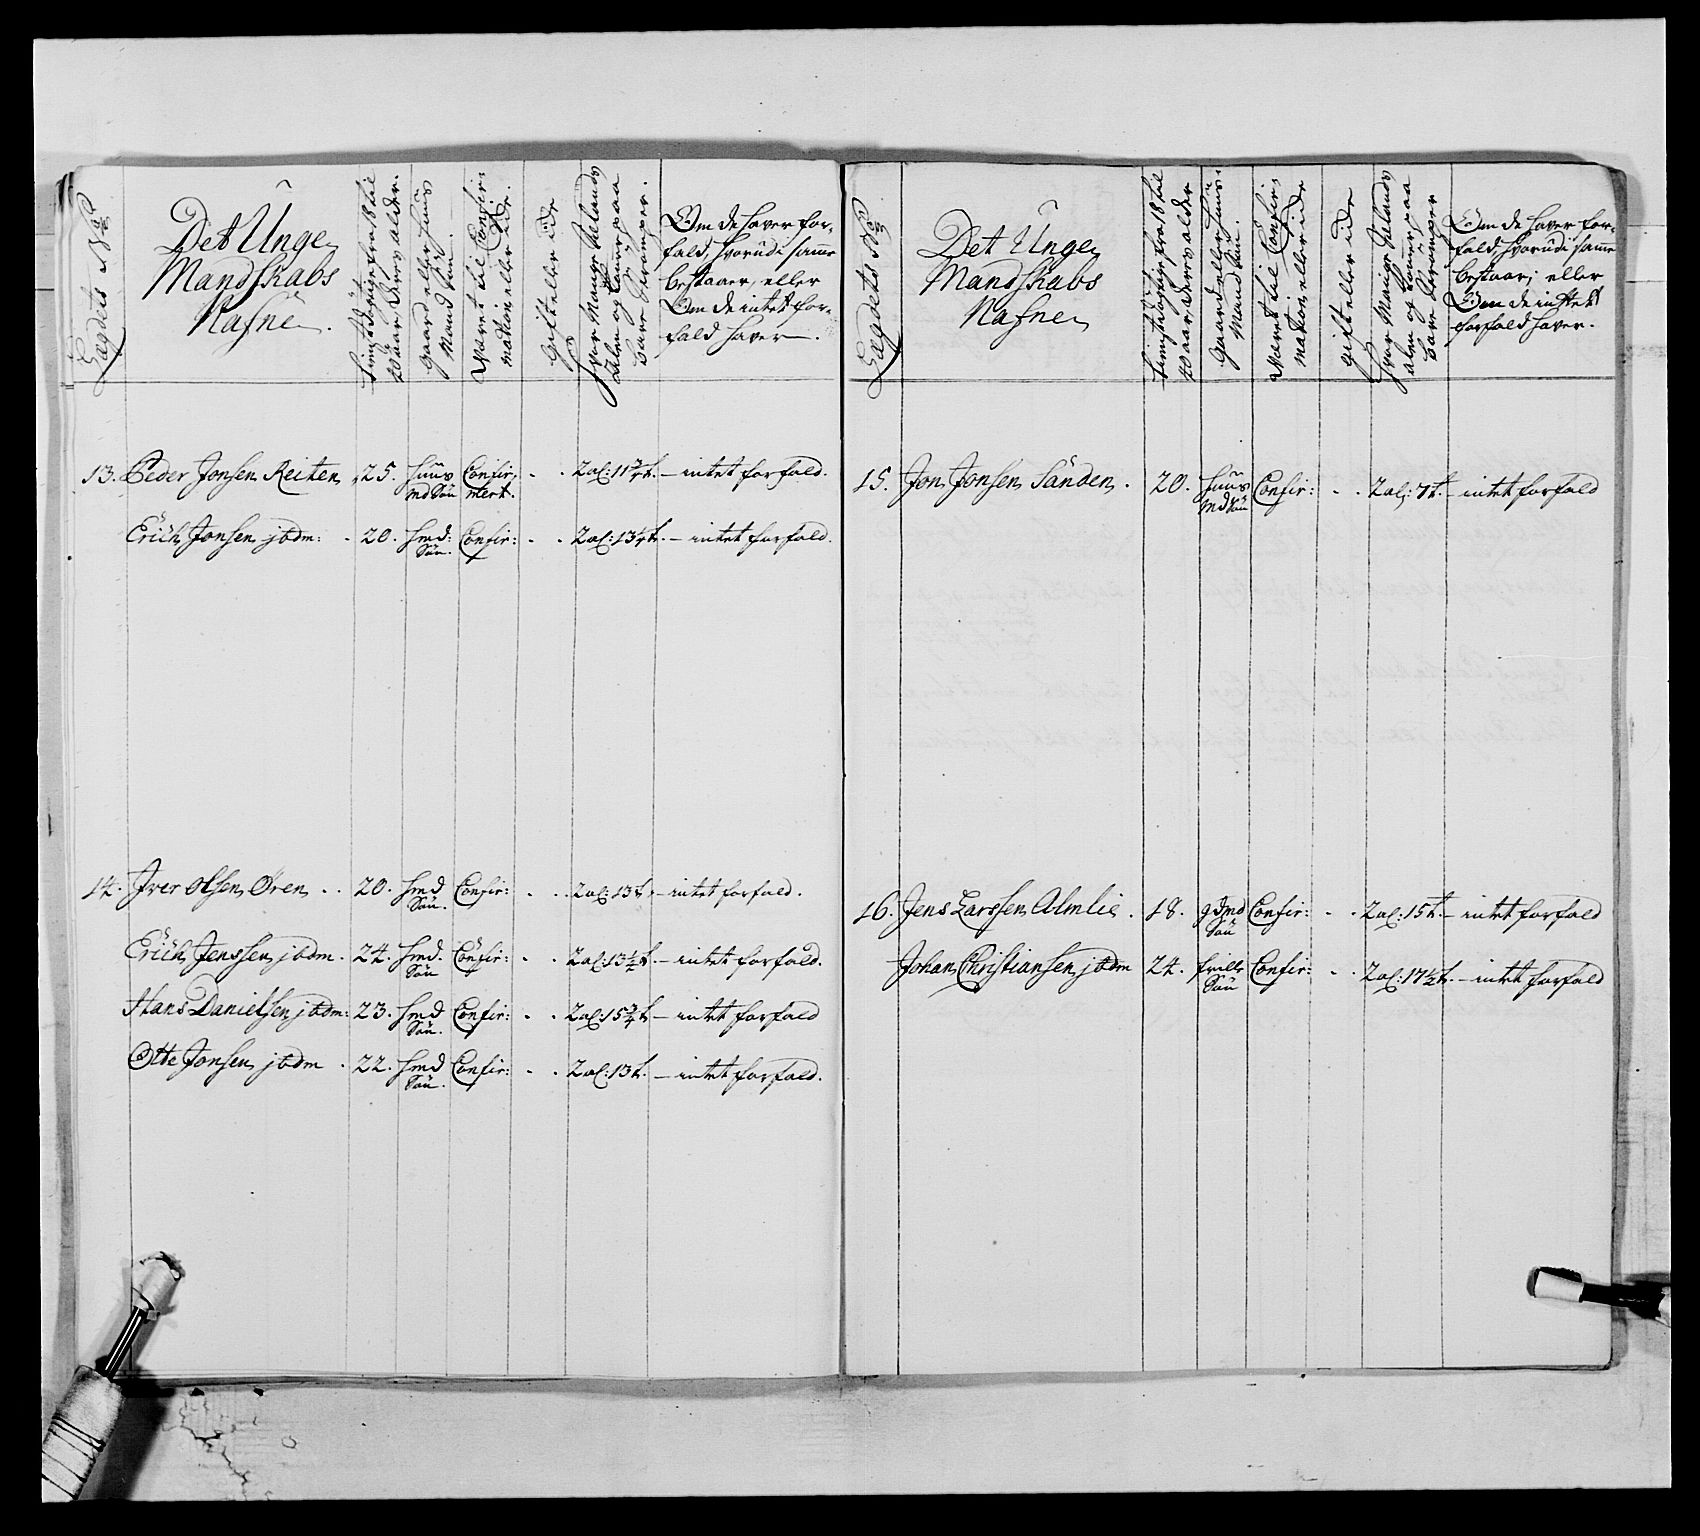 Lægdets No
Det Unge
Mandskabs
Nafne.
40 Aar deres alder.
gaard eller huus
Mand Søn.
Været til Confir-
mation eller ide.
gift eller ide
Hvor Mange
alen og
bare Strømper.
Om de haver for-
fald, hvorudi samme
bestaaer, eller
Om de intet for-
fald haver.
13. Peder Jonsen Reiten 25. huus Confir- - . 2 al: 11 3/4 t. – intet forfald.
md Søn mert.
Erich Jonsen ibdm: . 20. hmd: Confir: - . 2 al: 13 1/4 t. – intet forfald.
Søn.
14. Iver Olsen Øren . . 20. hmd Confir: . . 2 al: 13 t. – intet forfald.
Søn.
Erich Jenssen ibdm . 24. hmd. Confir: . . 2 al: 13 1/2 t. – intet forfald.
Søn
Hans Danielsen ibdm: 23. hmd Confir: . . 2 al: 15 3/4 t – intet forfald
Søn.
Otte Jonsen ibdm . 22. hmd Confir: . . 2 al: 13 t. – intet forfald.
Søn.
Lægdets No
Det Unge
Mandskabs
Nafne
40 Aar deres alder
gaard eller huus
Mand Søn.
Været til Confir
mation eller ide
gift eller ide
Hvor Mange
alen og
bare Strømper
Om de haver for-
fald, hvorudi samme
bestaar, eller
Om de intet
forfald haver.
15. Jon Jonsen Sanden . 20. huus Confir: - . 2 al: 7 t. – intet forfald
Md Søn
16. Jens Larssen Almlie . 18. gdmd Confir: - . 2 al: 15 t. – intet forfald
Søn
Johan Christiansen ibdm 24. frille Confir: - . 2 al: 17 1/2 t. – intet forfald
Søn